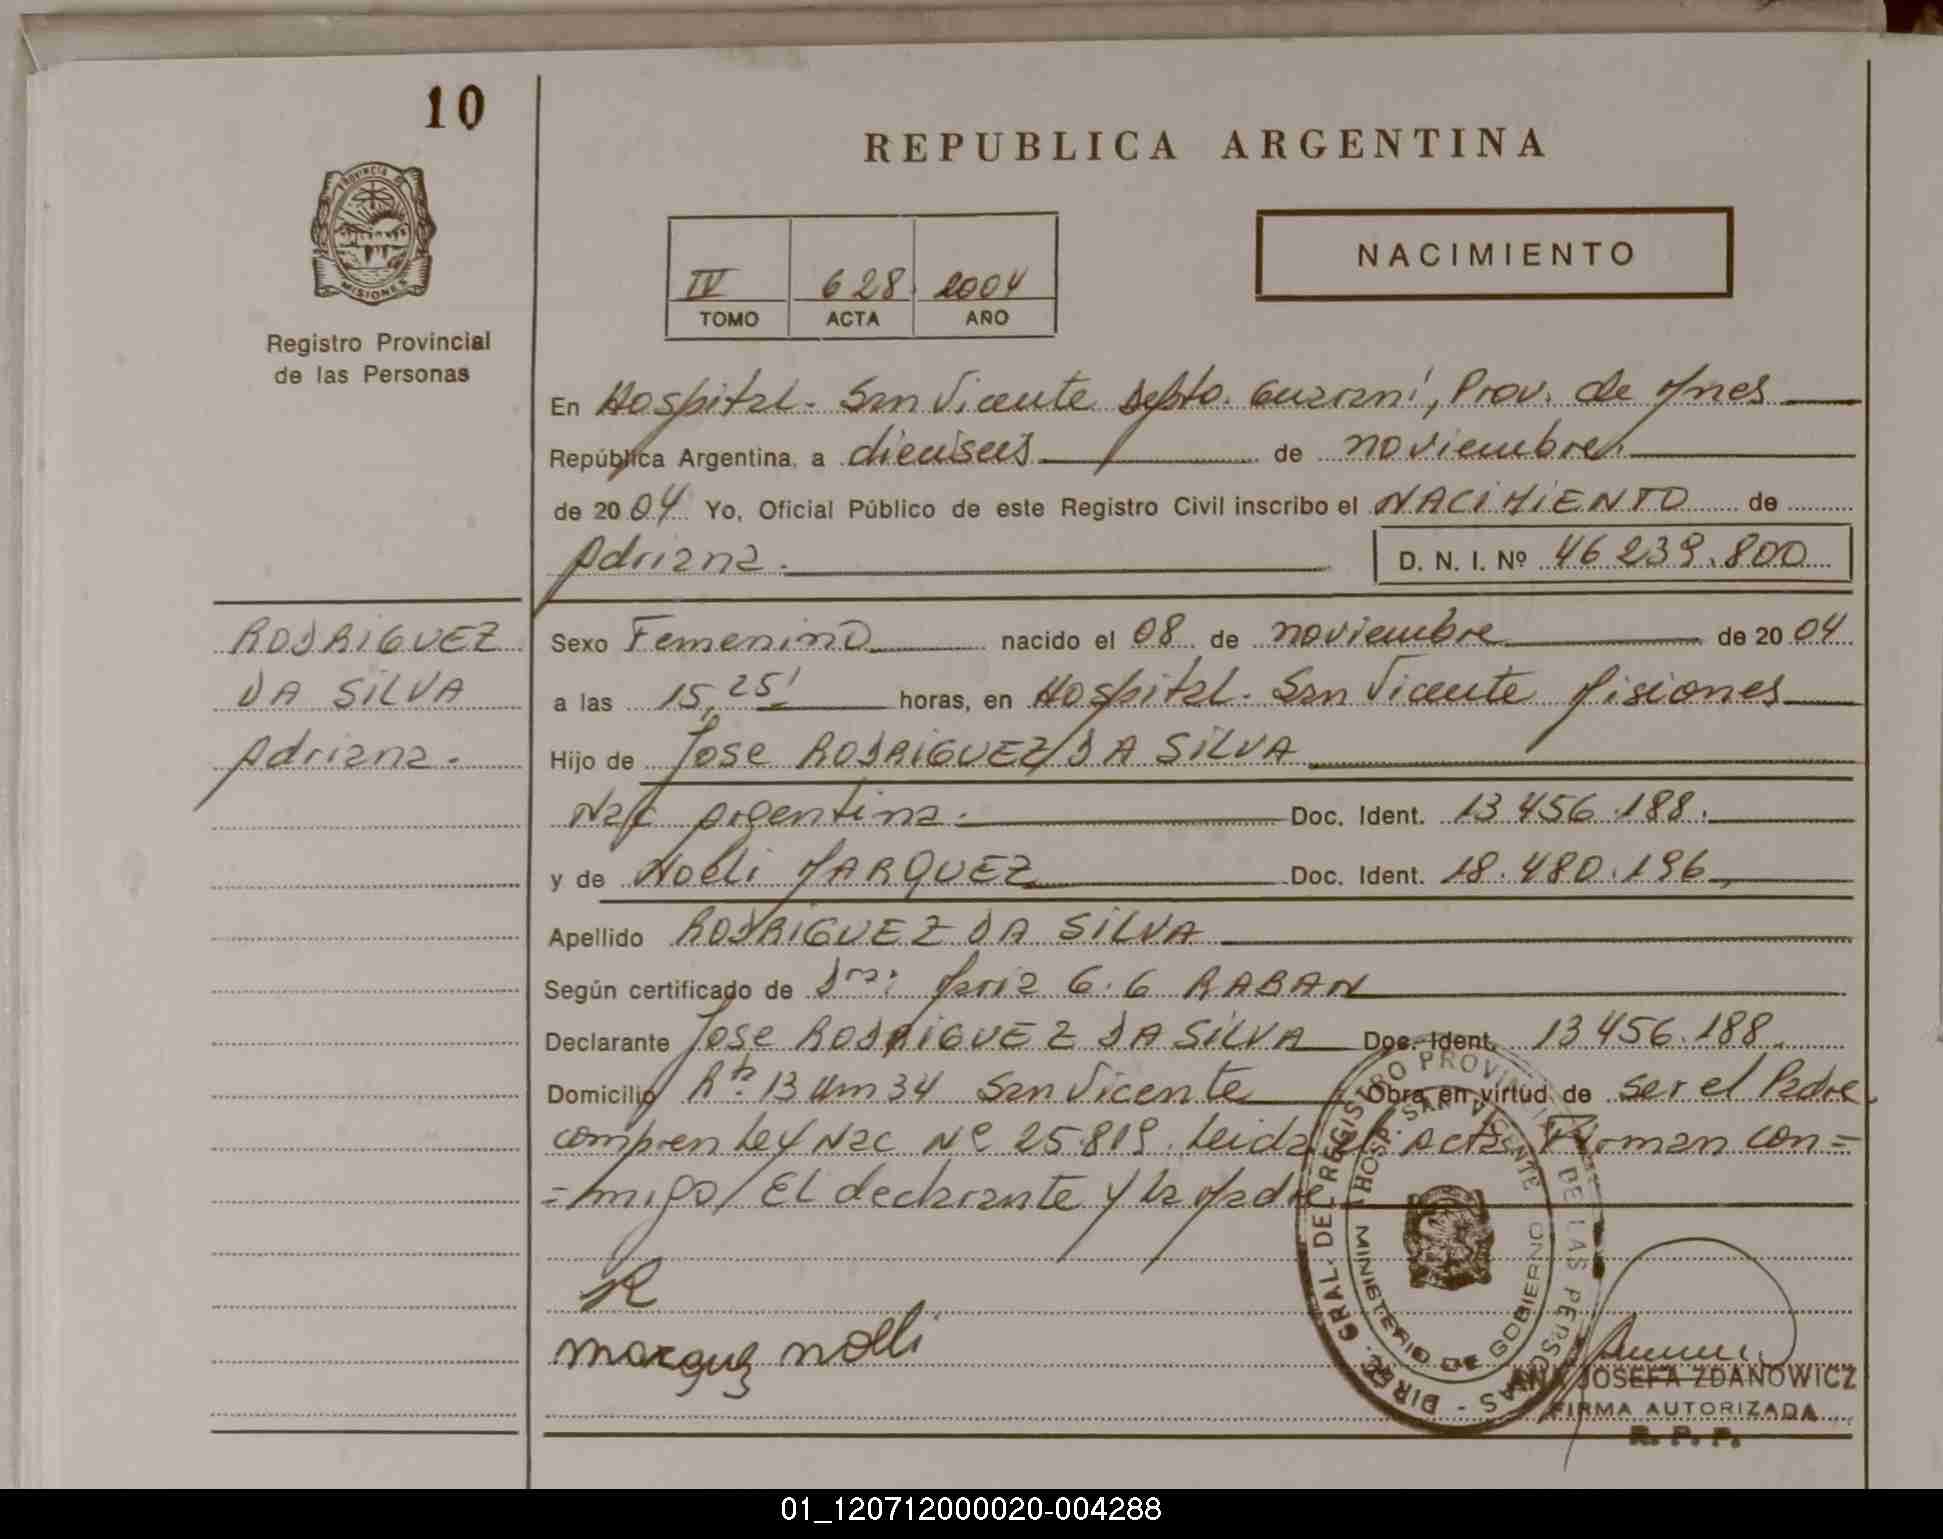 10
REPUBLICA ARGENTINA
PROVINCIA DE
MISIONES
NACIMIENTO
IV 628 2004
TOMO ACTA AÑO
Registro Provincial
de las Personas
En Hospital. San Vicente Depto. Guaraní, Prov. de Mnes
República Argentina, a dieciseis de noviembre
de 2004 Yo, Oficial Público de este Registro Civil inscribo el NACIMIENTO de
Adriana. D. N. I. Nº 46 239.800
RODRIGUEZ
DA SILVA
Adriana.
Sexo Femenino nacido el 08 de noviembre de 2004
a las 15,25' horas, en Hospital. San Vicente Misiones
Hijo de Jose RODRIGUEZ DA SILVA
Nac Argentina. Doc. Ident. 13 456.188.
y de Noeli MARQUEZ Doc. Ident. 18.480.196
Apellido RODRIGUEZ DA SILVA
Según certificado de Dra: Maria G. G RABAN
Declarante Jose RODRIGUEZ DA SILVA Doc. Ident. 13 456.188.
Domicilio Rta. 13 Km 34 San Vicente Obra en virtud de ser el Padre
compren Ley Nac Nº 25.819. Leida el Acta Firman con=
=migo/ El declarante y la Madre
R
marquez noeli
DIREC. GRAL. DEL REGISTRO PROVINCIAL DE LAS PERSONAS -
HOSP. SAN VICENTE
MINISTERIO DE GOBIERNO
ANA JOSEFA ZDANOWICZ
FIRMA AUTORIZADA
R. P. P.
01_120712000020-004288